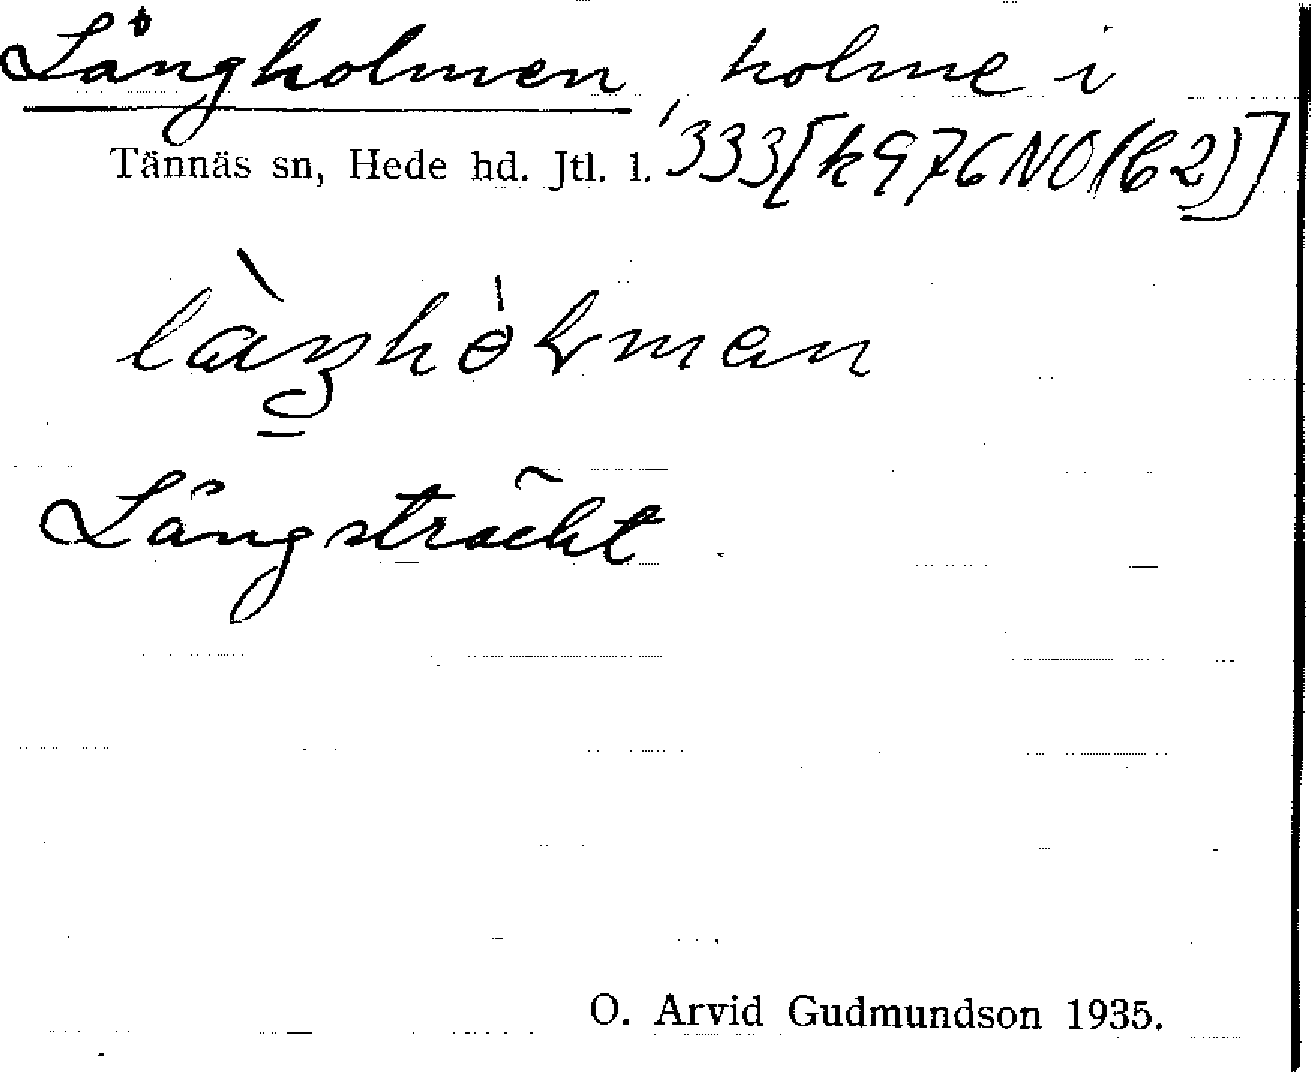 Långholmen, holme i
Tännäs sn, Hede hd. Jtl. l. 333 [k 976 NO (62)]
Långsträckt.
O. Arvid Gudmundson 1935.